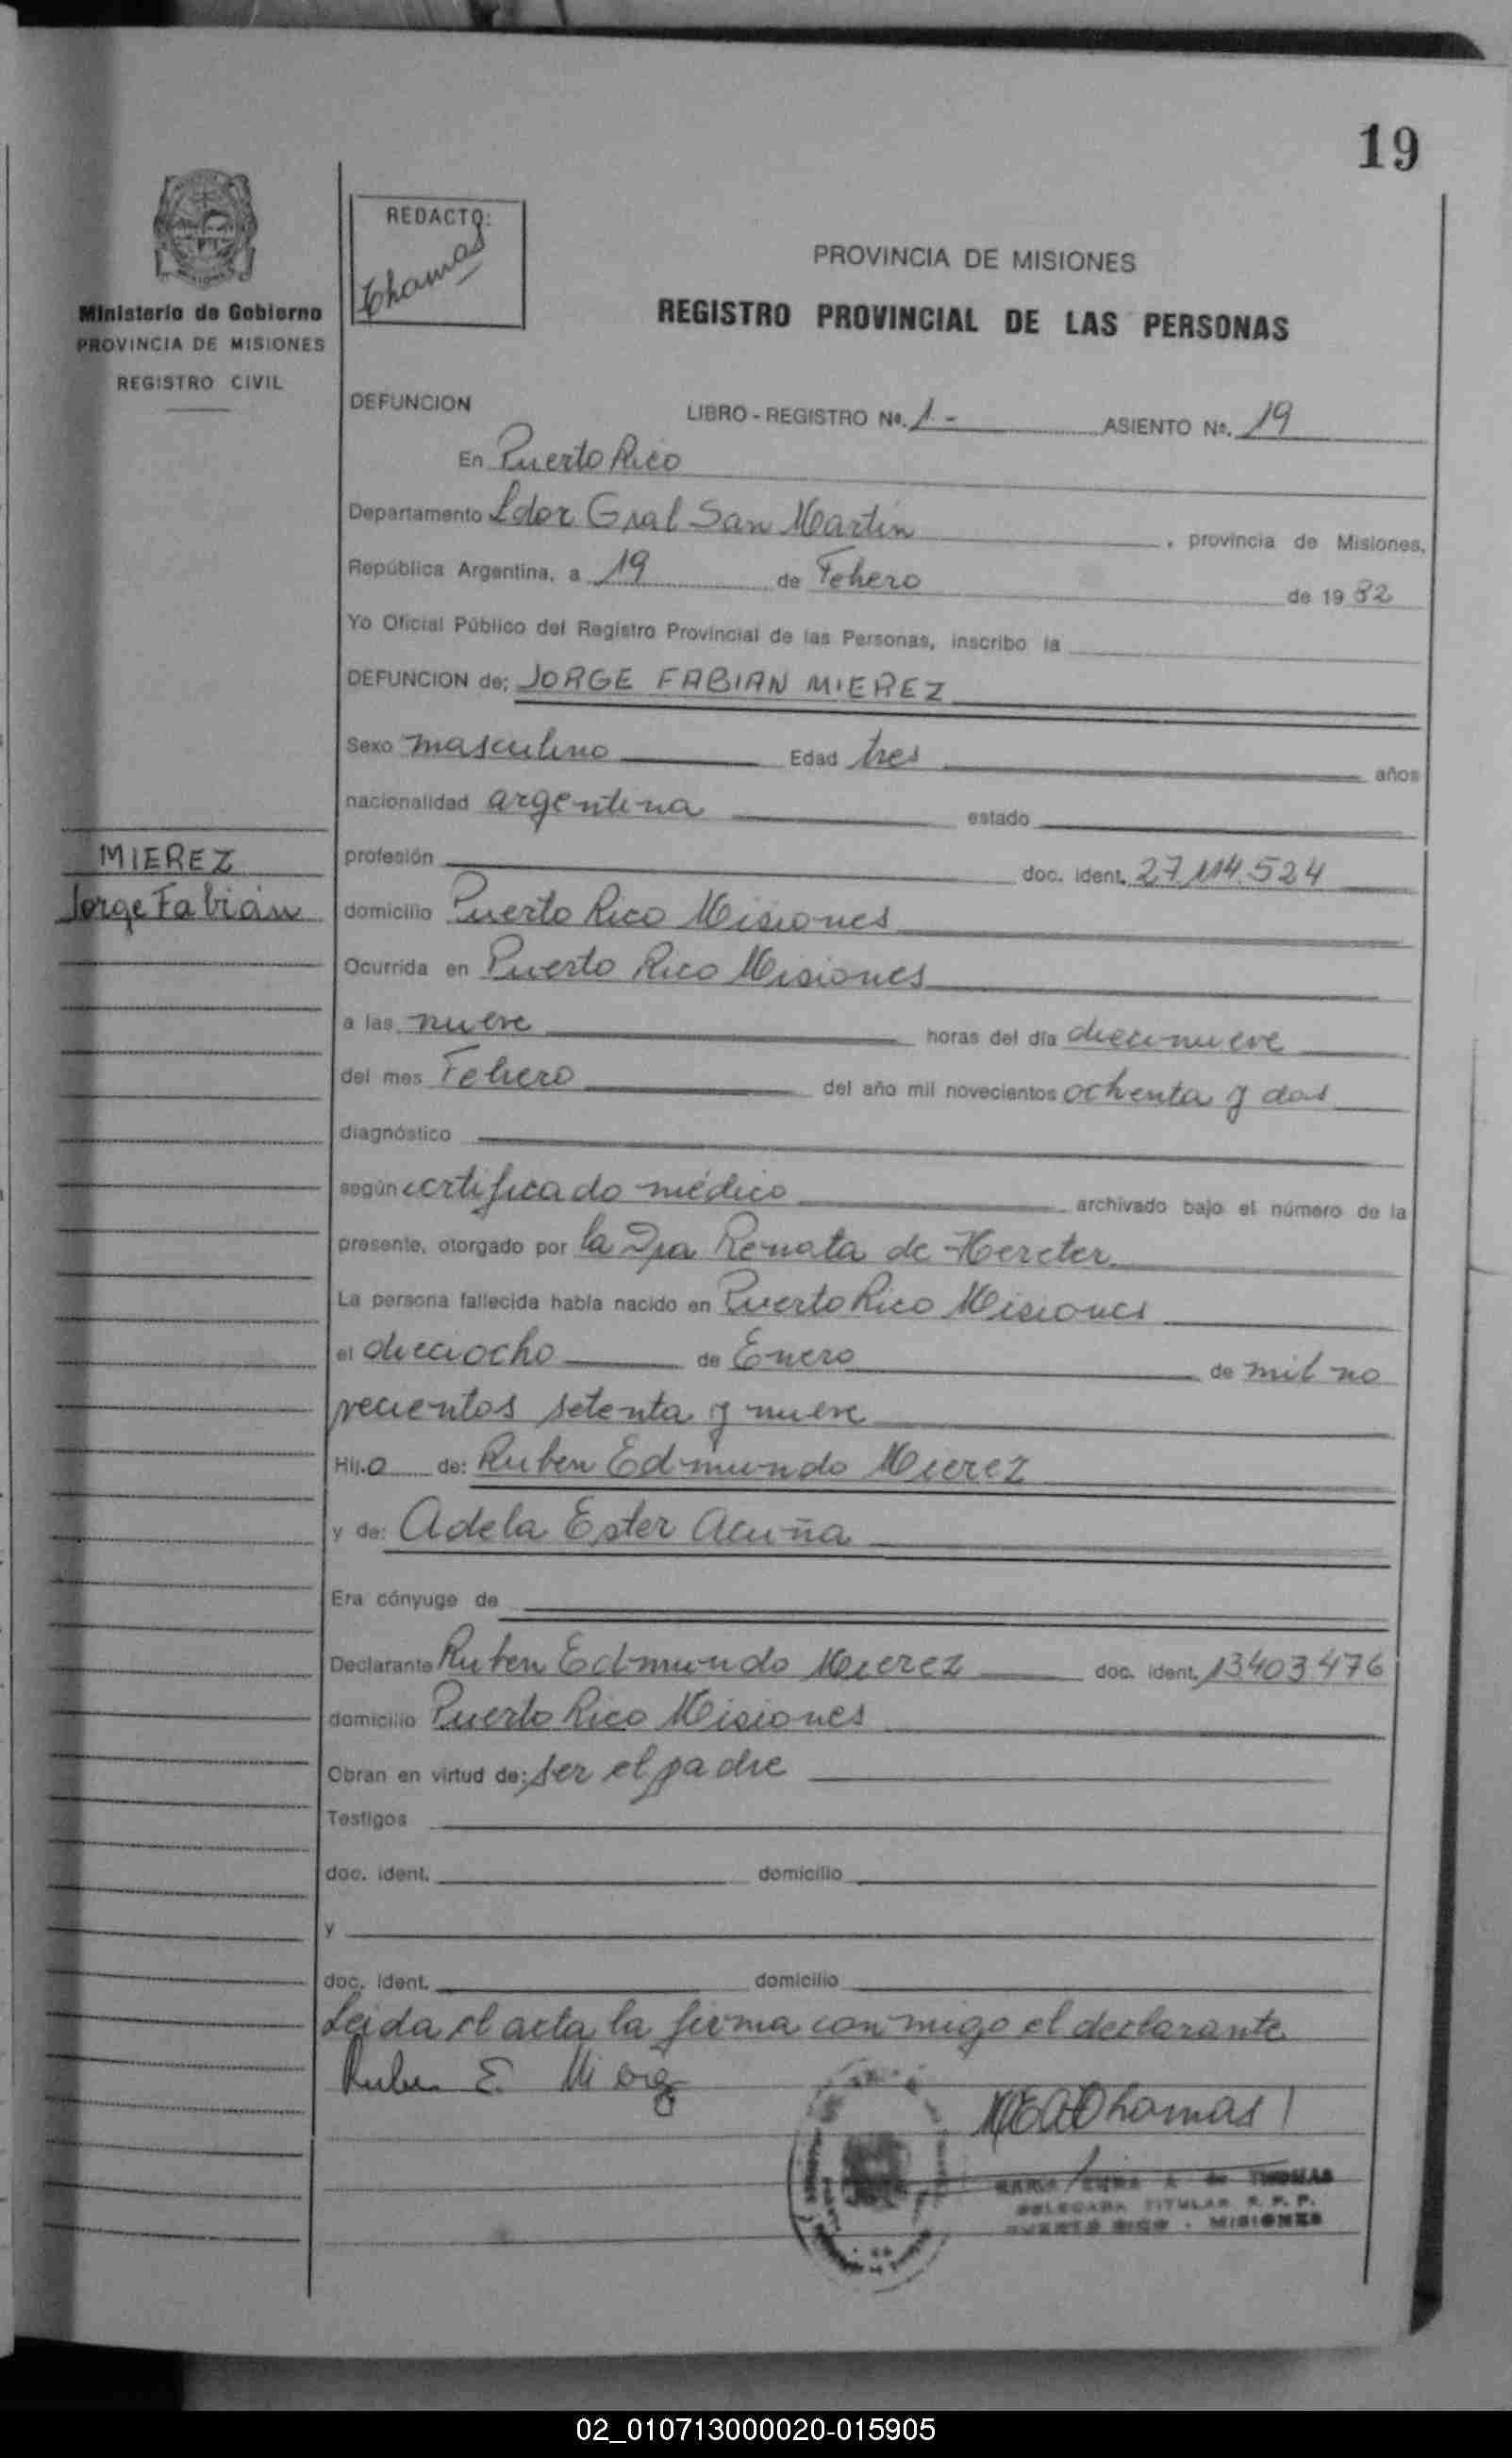 19
REDACTO:
Thomas
Ministerio de Gobierno
PROVINCIA DE MISIONES
REGISTRO CIVIL
PROVINCIA DE MISIONES
REGISTRO PROVINCIAL DE LAS PERSONAS
DEFUNCION LIBRO - REGISTRO Nº. 1 - ASIENTO Nº. 19
En Puerto Rico
Departamento Ldor Gral San Martin , provincia de Misiones,
República Argentina, a 19 de Febrero de 19 82
Yo Oficial Público del Registro Provincial de las Personas, inscribo la
DEFUNCION de: JORGE FABIAN MIEREZ
Sexo masculino Edad tres años
nacionalidad argentina estado
MIEREZ
Jorge Fabián
profesión doc. ident. 27.114.524
domicilio Puerto Rico Misiones
Ocurrida en Puerto Rico Misiones
a las nueve horas del día diecinueve
del mes Febrero del año mil novecientos ochenta y dos
diagnóstico
según certificado médico archivado bajo el número de la
presente, otorgado por la Dra Renata de Hereter
La persona fallecida había nacido en Puerto Rico Misiones
el dieciocho de Enero de mil no
vecientos setenta y nueve
Hij.o de: Ruben Edmundo Mierez
y de: Adela Ester Acuña
Era cónyuge de
Declarante Ruben Edmundo Mierez doc. ident. 13403476
domicilio Puerto Rico Misiones
Obran en virtud de: ser el padre
Testigos
doc. ident. domicilio
y
doc. ident. domicilio
Leida el acta la firma conmigo el declarante
Ruben E. Mierez
Thomas
A. de THOMAS
DELEGADA TITULAR R. P. P.
PUERTO RICO - MISIONES
02_010713000020-015905